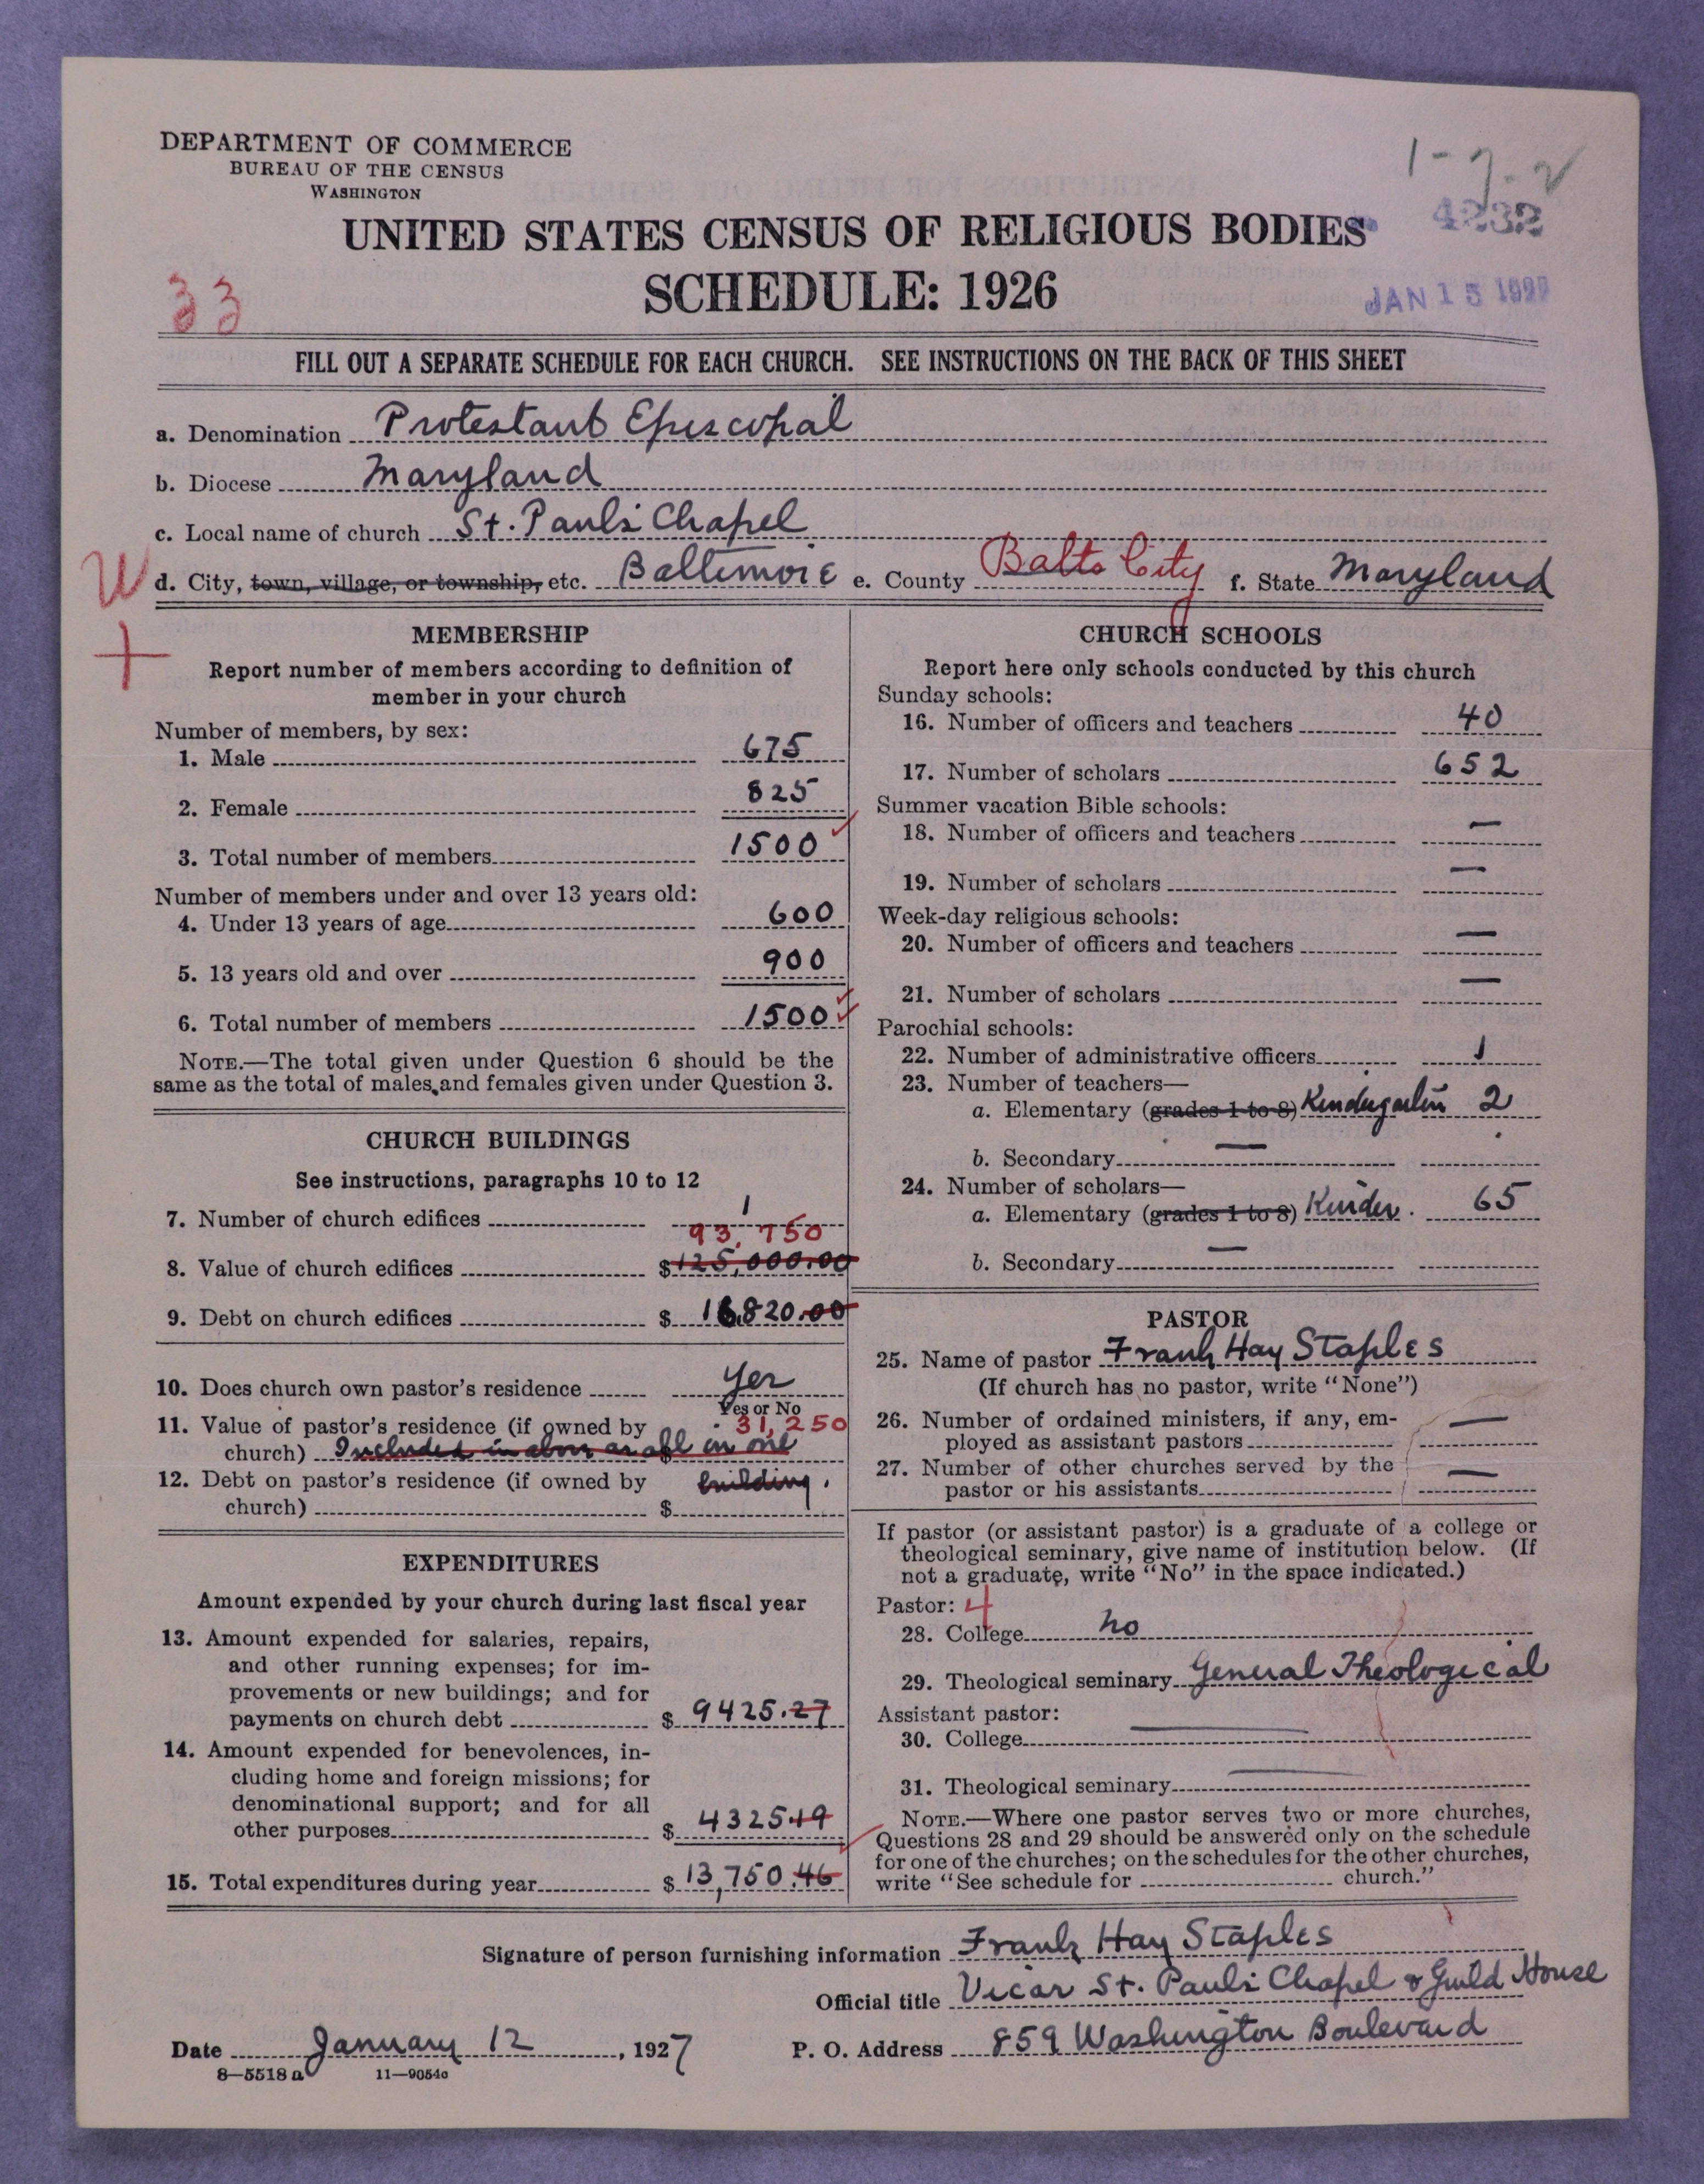 DEPARTMENT OF COMMERCE
BUREAU OF THE CENSUS
WASHINGTON
1-7-2
UNITED STATES CENSUS OF RELIGIOUS BODIES
4232
33
SCHEDULE: 1926
JAN 15 1927
FILL OUT A SEPARATE SCHEDULE FOR EACH CHURCH. SEE INSTRUCTIONS ON THE BACK OF THIS SHEET
a. Denomination Protestant Episcopal
b. Diocese Maryland
c. Local name of church St. Paul's Chapel
W d. City, town, village, or township, etc. Baltimore e. County Balto City f. State Maryland
+
MEMBERSHIP
Report number of members according to definition of
member in your church
Number of members, by sex:
1. Male 675
2. Female 825
3. Total number of members 1500
Number of members under and over 13 years old:
4. Under 13 years of age 600
5. 13 years old and over 900
6. Total number of members 1500
NOTE.—The total given under Question 6 should be the
same as the total of males and females given under Question 3.
CHURCH BUILDINGS
See instructions, paragraphs 10 to 12
7. Number of church edifices 1
93,750
8. Value of church edifices $125,000.00
9. Debt on church edifices $ 16,820.00
10. Does church own pastor's residence Yes
Yes or No
11. Value of pastor's residence (if owned by 31,250
church) Included in above as all in one
12. Debt on pastor's residence (if owned by building.
church) $
EXPENDITURES
Amount expended by your church during last fiscal year
13. Amount expended for salaries, repairs,
and other running expenses; for im-
provements or new buildings; and for
payments on church debt $ 9425.27
14. Amount expended for benevolences, in-
cluding home and foreign missions; for
denominational support; and for all
other purposes $ 4325.19
15. Total expenditures during year $ 13,750.46
CHURCH SCHOOLS
Report here only schools conducted by this church
Sunday schools:
16. Number of officers and teachers 40
17. Number of scholars 652
Summer vacation Bible schools:
18. Number of officers and teachers —
19. Number of scholars —
Week-day religious schools:
20. Number of officers and teachers —
21. Number of scholars —
Parochial schools:
22. Number of administrative officers 1
23. Number of teachers—
a. Elementary (grades 1 to 8) Kindergarten 2
b. Secondary —
24. Number of scholars—
a. Elementary (grades 1 to 8) Kinder. 65
b. Secondary —
PASTOR
25. Name of pastor Frank Hay Staples
(If church has no pastor, write "None")
26. Number of ordained ministers, if any, em-
ployed as assistant pastors —
27. Number of other churches served by the
pastor or his assistants —
If pastor (or assistant pastor) is a graduate of a college or
theological seminary, give name of institution below. (If
not a graduate, write "No" in the space indicated.)
Pastor: 4
28. College no
29. Theological seminary General Theological
Assistant pastor:
30. College —
31. Theological seminary —
NOTE.—Where one pastor serves two or more churches,
Questions 28 and 29 should be answered only on the schedule
for one of the churches; on the schedules for the other churches,
write "See schedule for church."
Signature of person furnishing information Frank Hay Staples
Official title Vicar St. Paul's Chapel & Guild House
Date January 12, 1927 P. O. Address 859 Washington Boulevard
8—5518 a 11—9054c